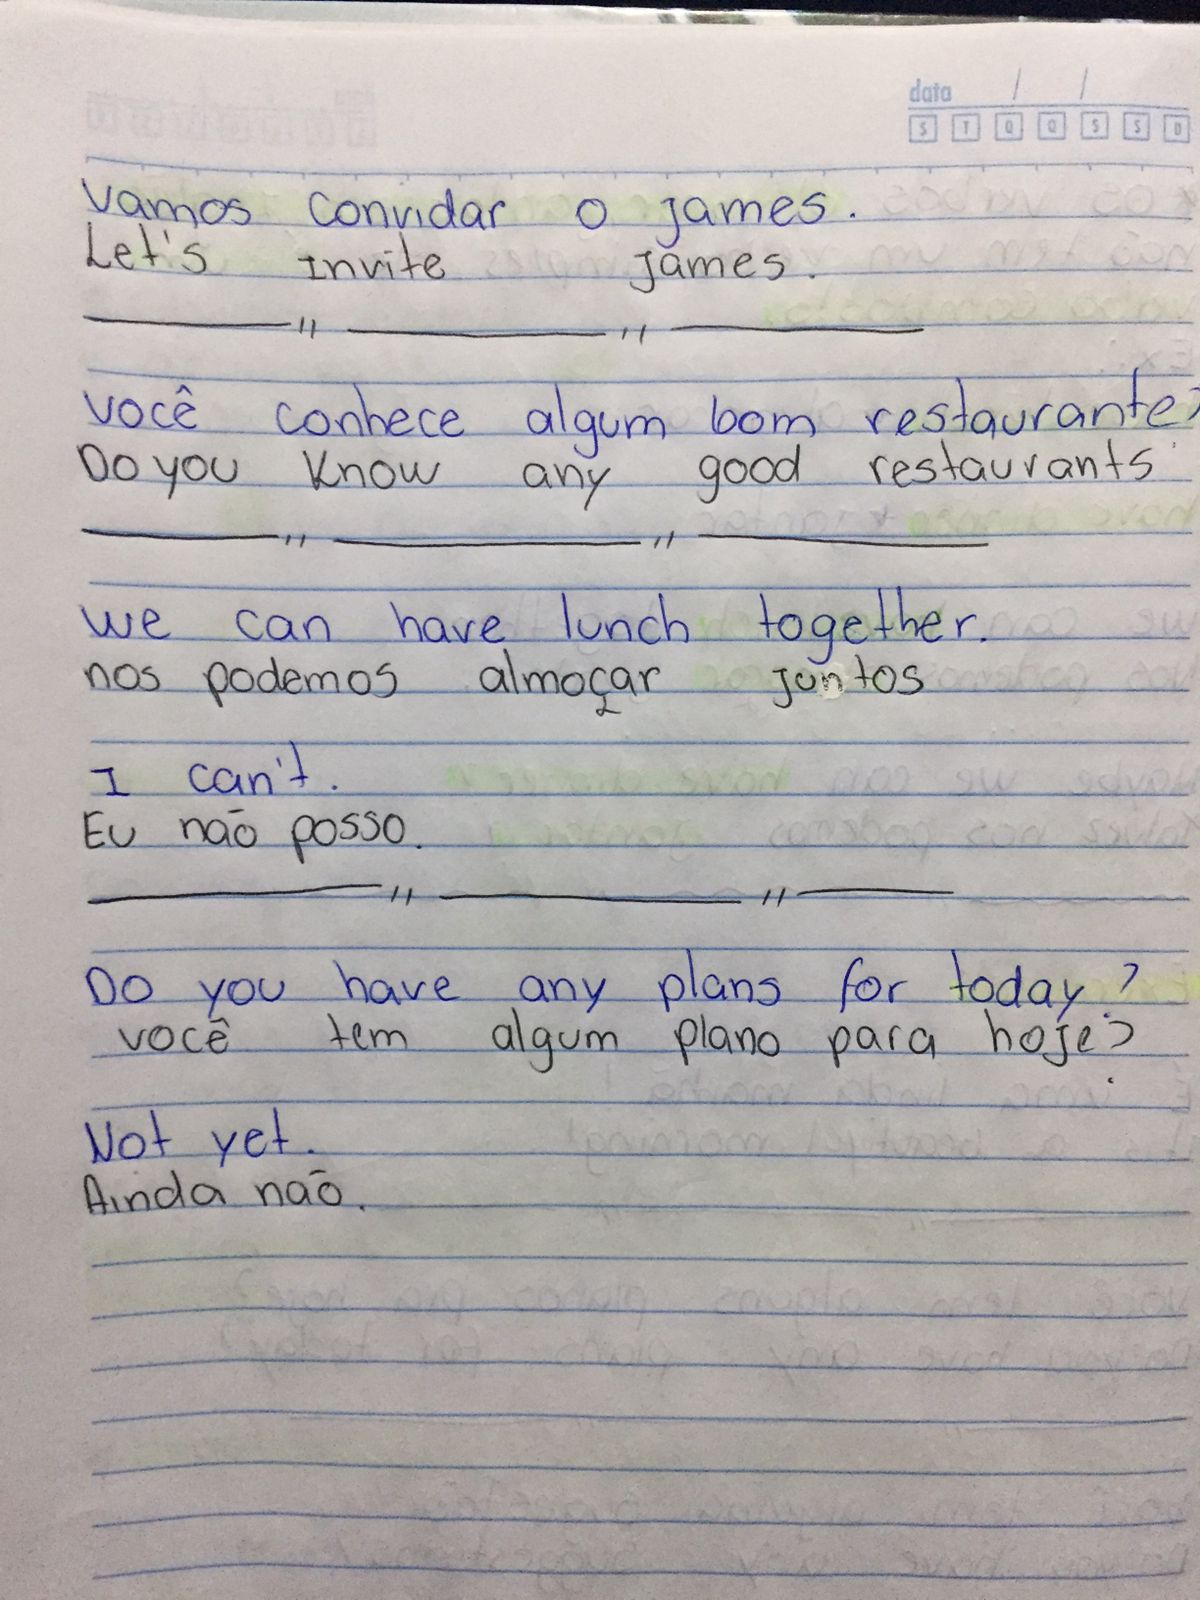 data / /
S T Q Q S S D
Vamos convidar o james.
Let's invite james.
Você conhece algum bom restaurante?
Do you know any good restaurants
We can have lunch together.
nos podemos almoçar juntos
I can't.
Eu não posso.
Do you have any plans for today?
você tem algum plano para hoje?
Not yet.
Ainda não.